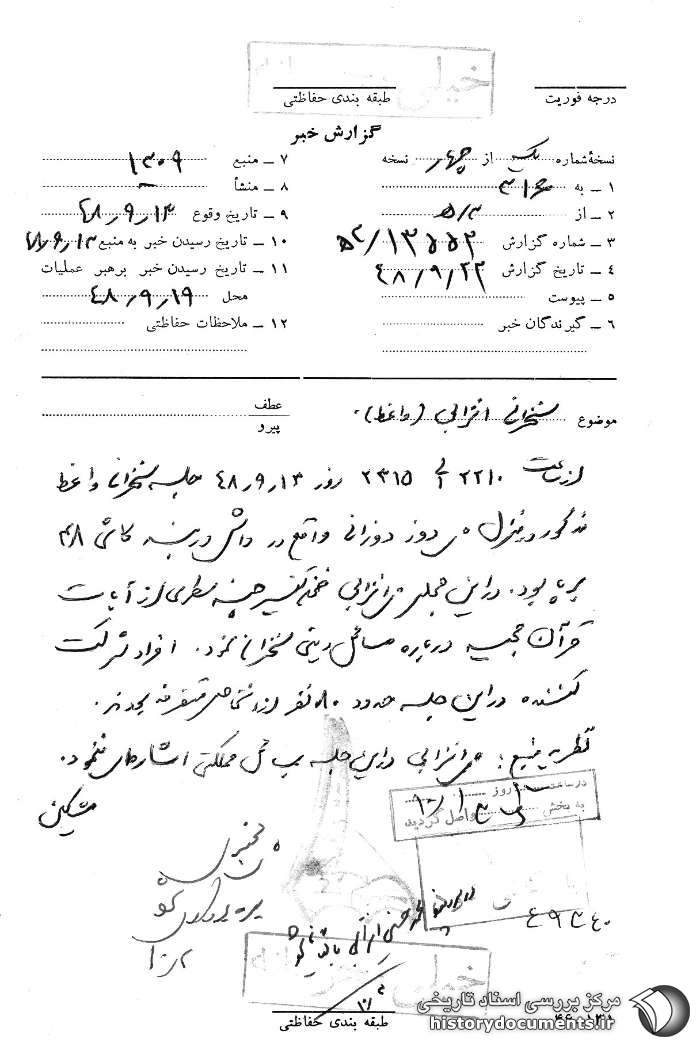 خیلی
درجه فوریت
طبقه بندی حفاظتی
گزارش خبر
نسخهٔ شماره یک از چهار نسخه
۱ ــ به ۳۱۶
۲ ــ از ۵/۳
۳ ــ شماره گزارش
۴ ــ تاریخ گزارش ۴۸/۹/۲۲
۵ ــ پیوست
۶ ــ گیرندگان خبر
۷ ــ منبع ۱۳۰۹
۸ ــ منشأ ــ
۹ ــ تاریخ وقوع ۴۸٫۹٫۱۳
۱۰ ــ تاریخ رسیدن خبر به منبع ۴۸٫۹٫۱۳
۱۱ ــ تاریخ رسیدن خبر برهبر عملیات
محل ۴۸٫۹٫۱۹
۱۲ ــ ملاحظات حفاظتی
موضوع سخنرانی انزابی (واعظ).
عطف
پیرو
از ساعت ۲۲۱۰ الی ۲۳۱۵ روز ۴۸٫۹٫۱۳ جلسه سخنرانی واعظ
مذکور در منزل دوزدوزانی واقع در کاشی ۴۸
برپا بود. در این مجلس انزابی ضمن تفسیر چند سطری از آیات
قرآن مجید درباره مسائل دینی سخنرانی نمود. افراد شرکت
کننده در این جلسه حدود ۸۰ نفر از اشخاص متفرقه بودند.
نظریه منبع : انزابی در این جلسه به مسائل مملکتی اشاره‌ای ننمود.
مشکین
روز
به بخش واصل گردید
انزابی بایگانی شود
۴۹۳۴۰
خیلی
طبقه بندی حفاظتی
مرکز بررسی اسناد تاریخی
historydocuments.ir